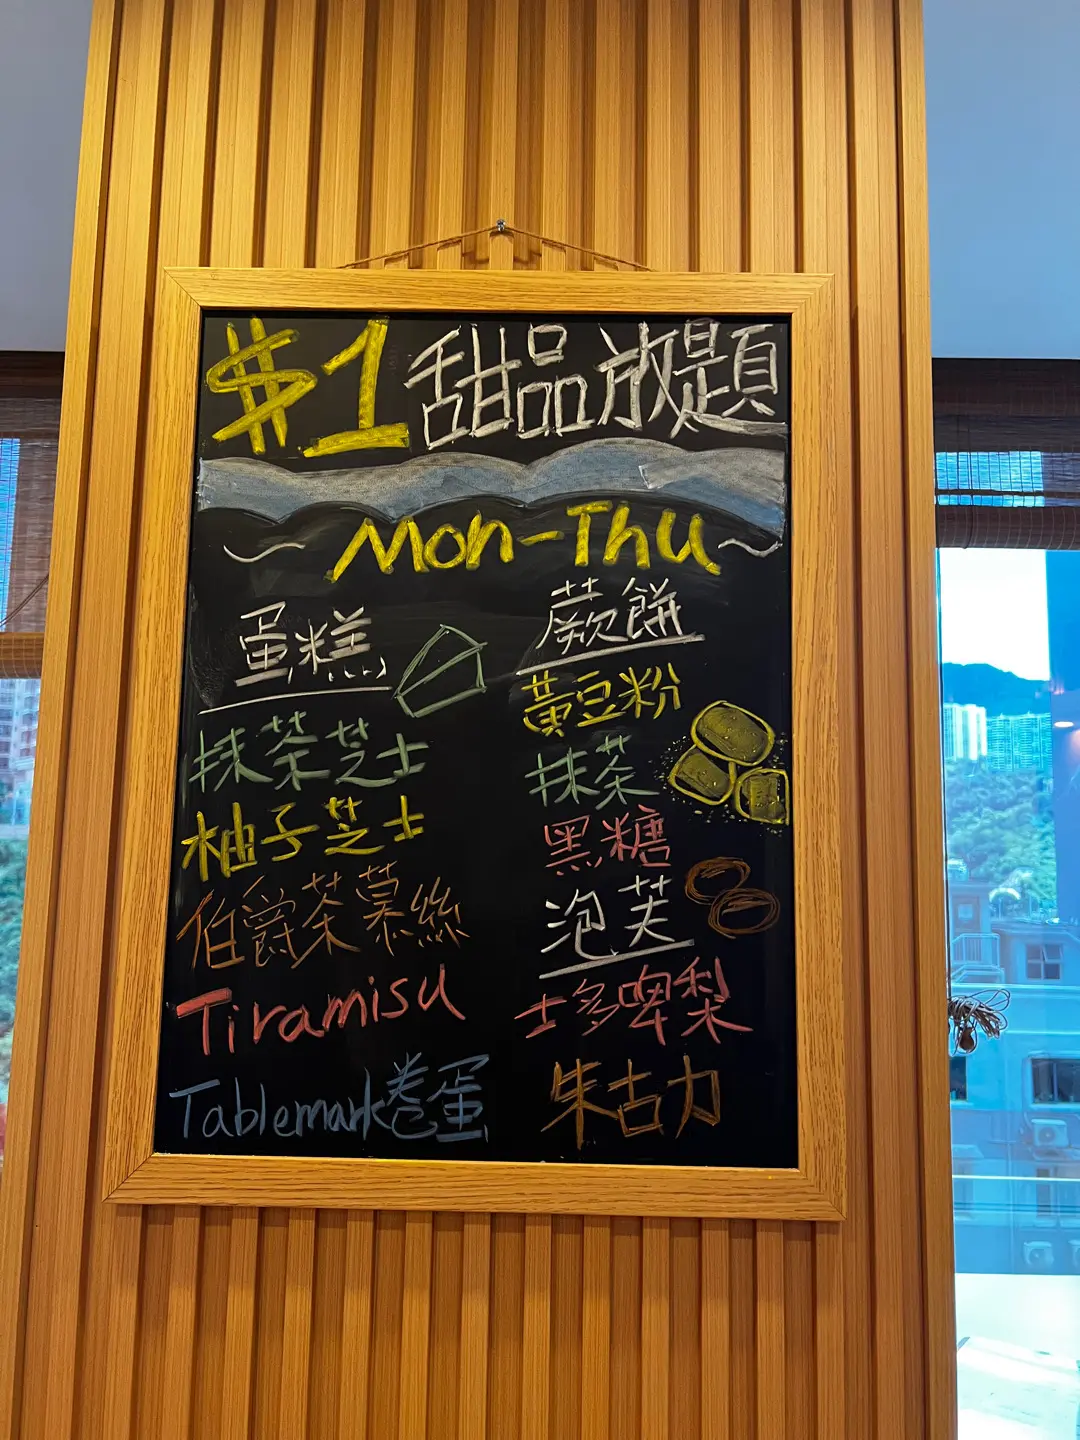 $1 甜品放題
~ Mon-Thu ~
蛋糕
抹茶芝士
柚子芝士
伯爵茶慕絲
Tiramisu
Tablemark卷蛋
蕨餅
黃豆粉
抹茶
黑糖
泡芙
士多啤梨
朱古力